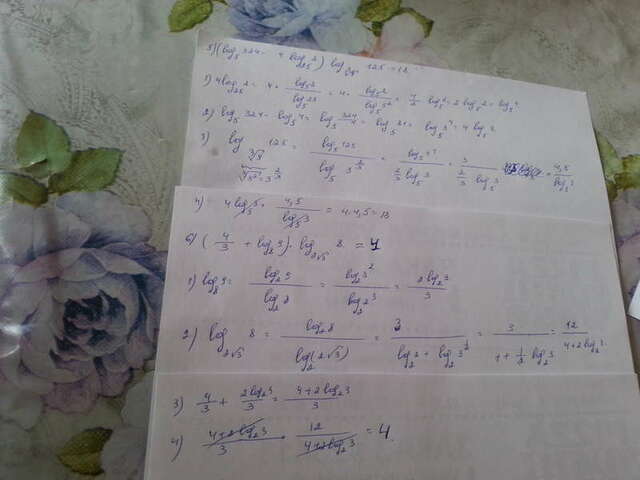 5) (log₅ 324 - 4 log₂₅ 2) log 125 = 18
1) 4 log₂₅ 2 = 4 · log₅ 2 / log₅ 25 = 4 · log₅ 2 / log₅ 5² = 4/2 log₅ 2 = 2 log₅ 2 = log₅ 4
2) log₅ 324 - log₅ 4 = log₅ 324/4 = log₅ 81 = log₅ 3⁴ = 4 log₅ 3
3) log ∛9 125 = log₅ 125 / log₅ 3^(2/3) = log₅ 5³ / (2/3 log₅ 3) = 3 / (2/3 log₅ 3) = 4,5 / log₅ 3
∛3² = 3^(2/3)
4) 4 log₅ 3 · 4,5 / log₅ 3 = 4 · 4,5 = 18
6) (4/3 + log₈ 9) · log₂√3 8 = 4
1) log₈ 9 = log₂ 9 / log₂ 8 = log₂ 3² / log₂ 2³ = 2 log₂ 3 / 3
2) log₂√3 8 = log₂ 8 / log₂(2√3) = 3 / (log₂ 2 + log₂ 3^(1/2)) = 3 / (1 + 1/2 log₂ 3) = 12 / (4 + 2 log₂ 3)
3) 4/3 + 2 log₂ 3 / 3 = (4 + 2 log₂ 3) / 3
4) (4 + 2 log₂ 3) / 3 · 12 / (4 + 2 log₂ 3) = 4